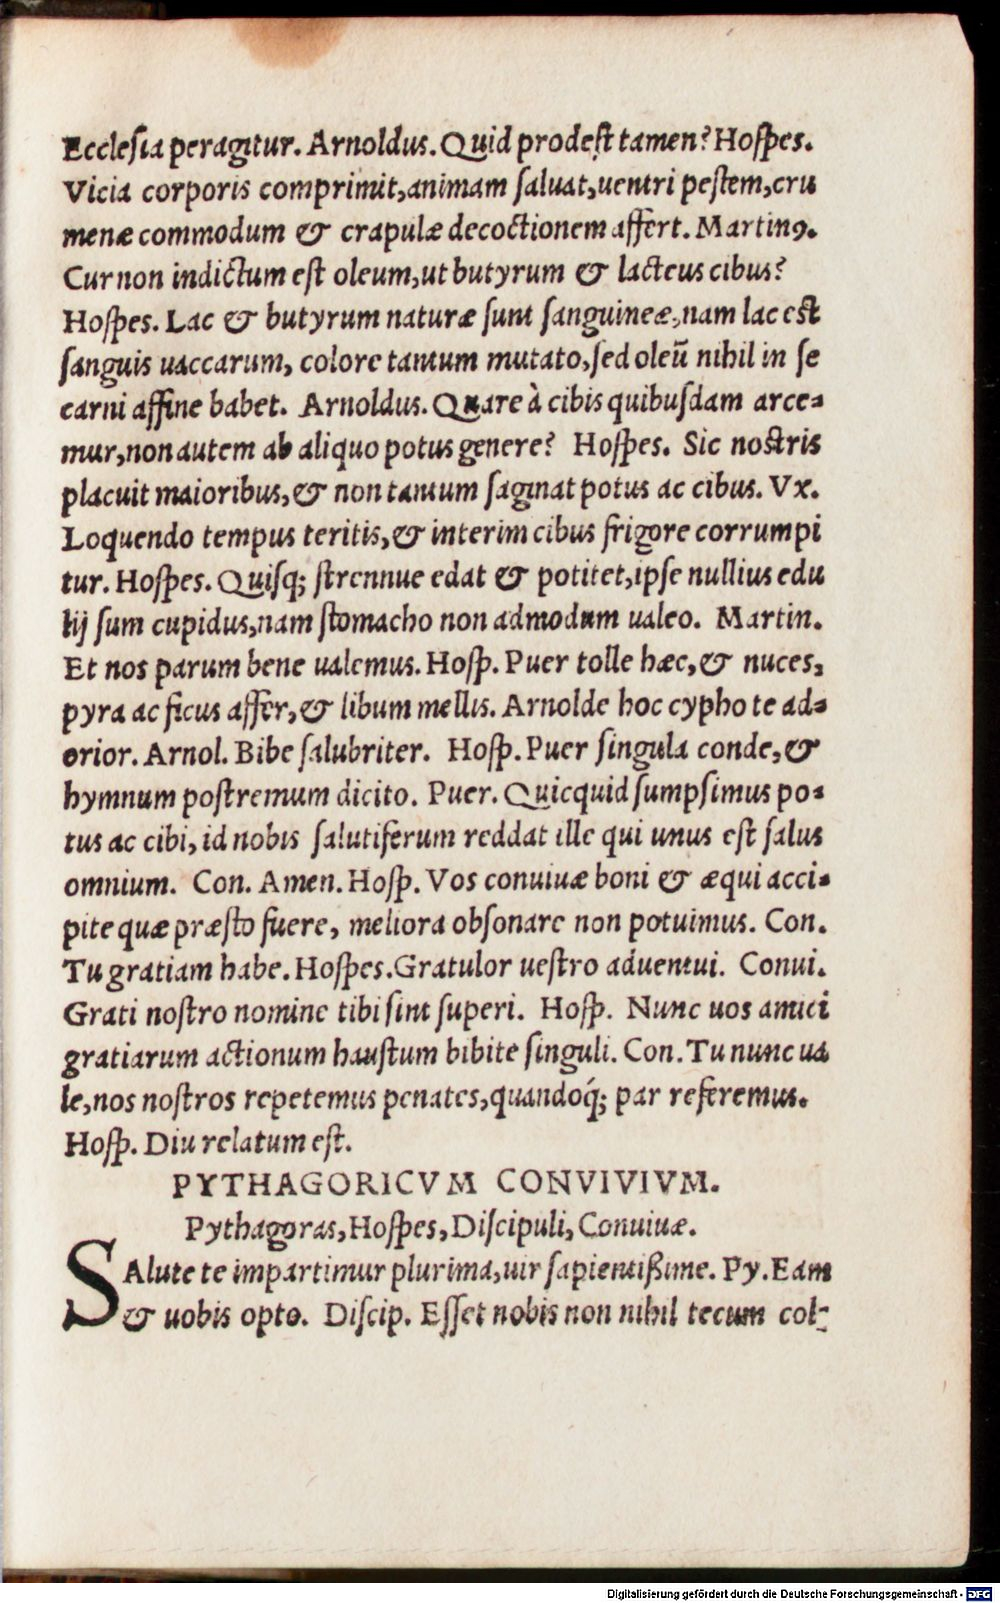 Eccleſia peragitur. Arnoldus. Quid prodeſt tamen? Hoſpes.
Vicia corporis comprimit, animam ſaluat, uentri peſtem, cru
menæ commodum & crapulæ decoctionem affert. Martinꝰ.
Cur non indictum eſt oleum, ut butyrum & lacteus cibus?
Hoſpes. Lac & butyrum naturæ ſunt ſanguineæ, nam lac eſt
ſanguis uaccarum, colore tantum mutato, ſed oleū nihil in ſe
carni affine habet. Arnoldus. Quare à cibis quibuſdam arce-
mur, non autem ab aliquo potus genere? Hoſpes. Sic noſtris
placuit maioribus, & non tantum ſaginat potus ac cibus. Vx.
Loquendo tempus teritis, & interim cibus frigore corrumpi
tur. Hoſpes. Quiſq; ſtrennue edat & potitet, ipſe nullius edu
lij ſum cupidus, nam ſtomacho non admodum ualeo. Martin.
Et nos parum bene ualemus. Hoſp. Puer tolle hæc, & nuces,
pyra ac ficus affer, & libum mellis. Arnolde hoc cypho te ad-
orior. Arnol. Bibe ſalubriter. Hoſp. Puer ſingula conde, &
hymnum poſtremum dicito. Puer. Quicquid ſumpſimus po-
tus ac cibi, id nobis ſalutiferum reddat ille qui unus eſt ſalus
omnium. Con. Amen. Hoſp. Vos conuiuæ boni & æqui acci-
pite quæ præſto fuere, meliora obſonare non potuimus. Con.
Tu gratiam habe. Hoſpes. Gratulor ueſtro aduentui. Conui.
Grati noſtro nomine tibi ſint ſuperi. Hoſp. Nunc uos amici
gratiarum actionum hauſtum bibite ſinguli. Con. Tu nunc ua
le, nos noſtros repetemus penates, quandoq́; par referemus.
Hoſp. Diu relatum eſt.
PYTHAGORICVM CONVIVIVM.
Pythagoras, Hoſpes, Diſcipuli, Conuiuæ.
SAlute te impartimur plurima, uir ſapientißime. Py. Eam
& uobis opto. Diſcip. Eſſet nobis non nihil tecum col-
Digitalisierung gefördert durch die Deutsche Forschungsgemeinschaft - DFG